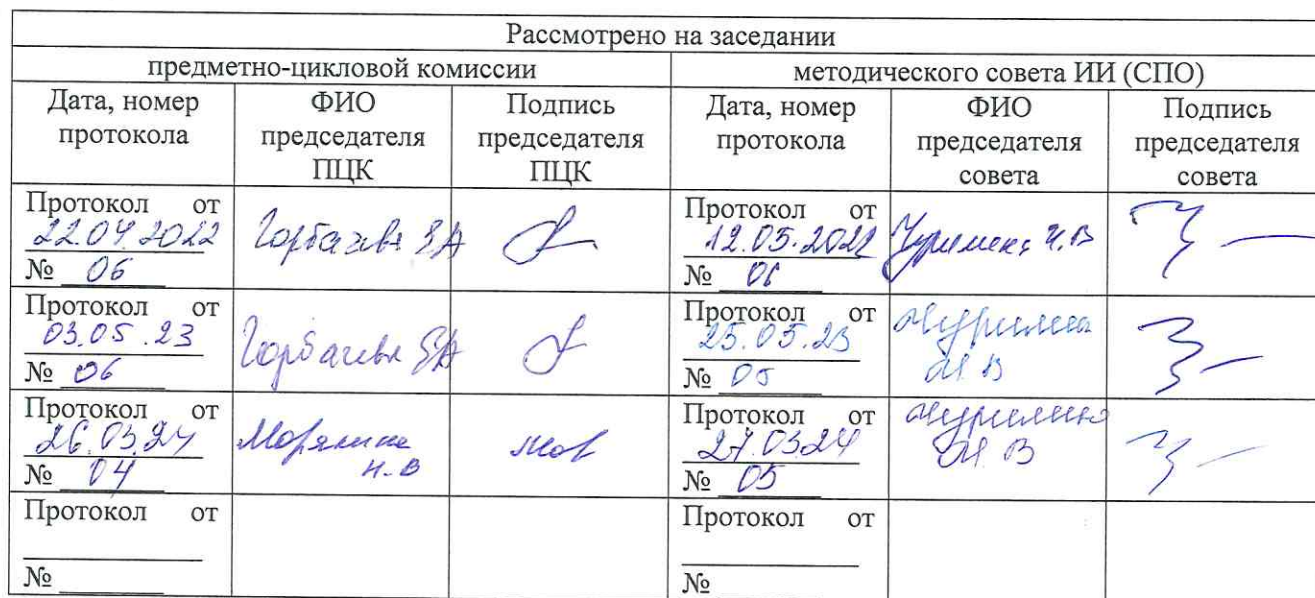 Рассмотрено на заседании
предметно-цикловой комиссии методического совета ИИ (СПО)
Дата, номер протокола ФИО председателя ПЦК Подпись председателя ПЦК Дата, номер протокола ФИО председателя совета Подпись председателя совета
Протокол от
22.04.2022
№ 06
Горбачева
Протокол от
12.05.2022
№ 06
Протокол от
03.05.23
№ 06
Горбачева
Протокол от
25.05.23
№ 05
Протокол от
26.03.24
№ 04
Н.В
Протокол от
27.03.24
№ 05
Протокол от
№
Протокол от
№